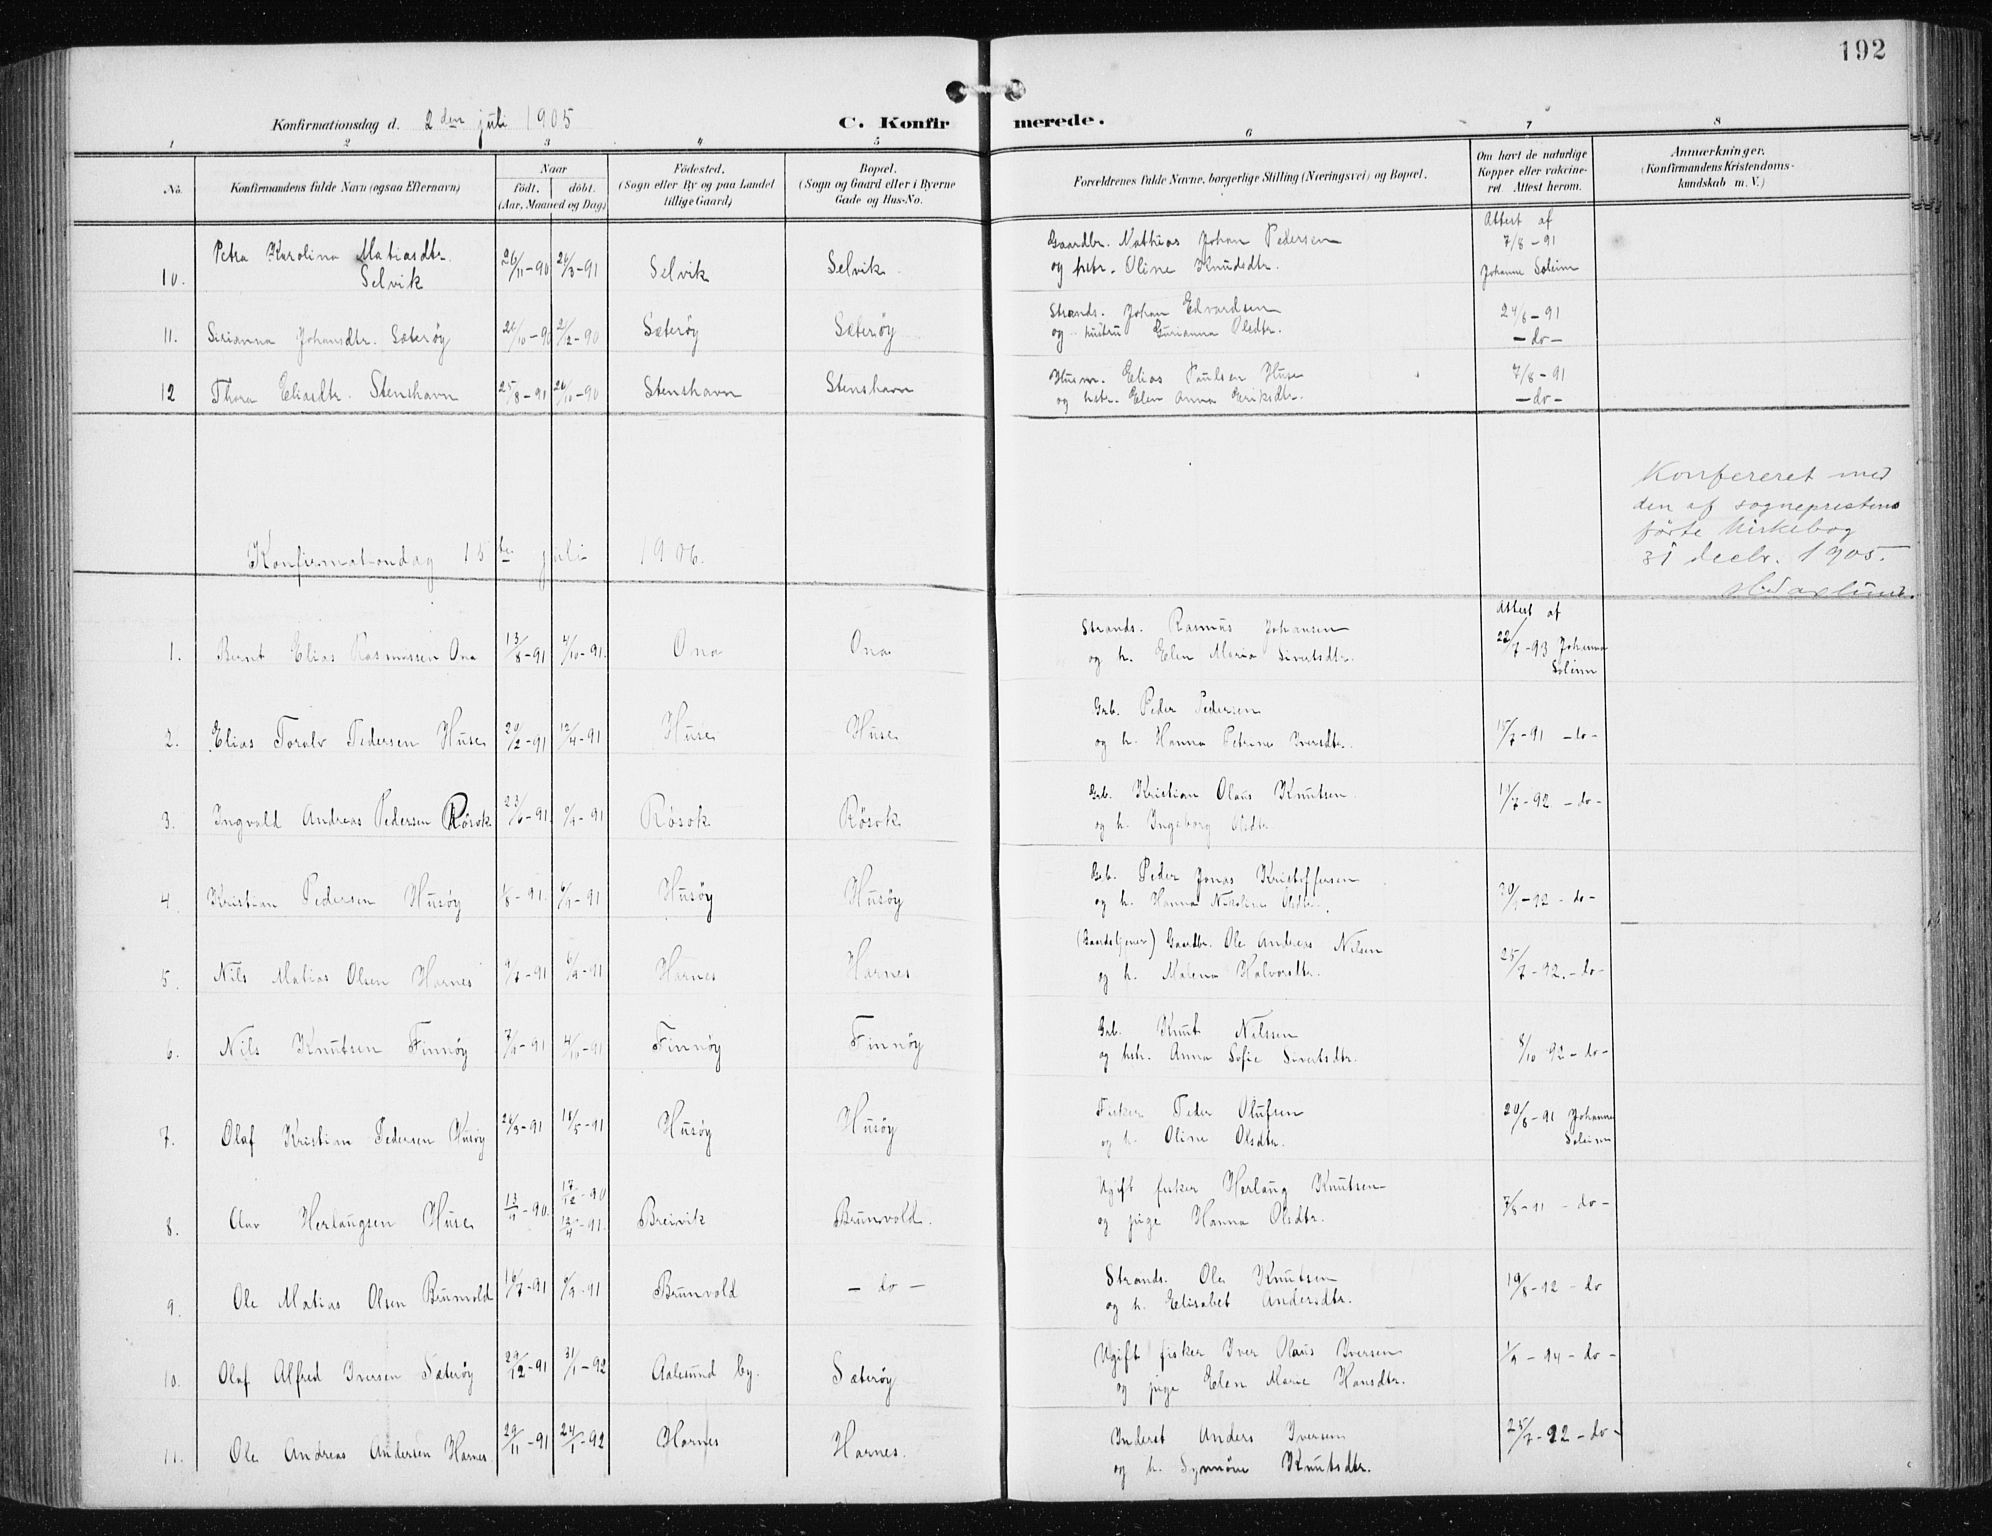 192
Konfirmationsdag d. 2den juli 1905
C. Konfirmerede.
1 2 3 4 5 6 7 8
No. Konfirmandens fulde Navn (ogsaa Efternavn)
Naar
födt. döbt.
(Aar, Maaned og Dag)
Födested.
(Sogn eller By og paa Landet
tillige Gaard)
Bopæl.
(Sogn og Gaard eller i Byerne
Gade og Hus-No.
Forældrenes fulde Navne, borgerlige Stilling (Næringsvei) og Bopæl.
Om havt de naturlige
Kopper eller vakcine-
ret. Attest herom.
Anmærkninger.
(Konfirmandens Kristendoms-
kundskab m. V.)
10. Petra Karolina Matiasdtr. Selvik 26/11-90 26/3-91 Selvik Selvik
Gaardbr. Mathias Johan Pedersen
og hstr. Oline Knudsdtr.
Attest af
7/8-91
Johanne Soleim
11. Sirianna Johansdtr. Sæterøy Sæterøy Sæterøy
Strands. Johan Edvardsen
og hustru Gurianna Olsdtr.
24/8-91
-do-
12 Thora Eliasdtr. Stenshavn 25/8-91 26/10-90 Stenshavn Stenshavn
Husm. Elias Paulsen Huse
og hstr. Elen Anna Eriksdtr.
7/8-91
-do-
Konfereret med
den af sognepresten
førte Kirkebog
31 decbr. 1905.
Konfirmationdag 15de juli 1906.
1. Bernt Elias Rasmussen Ona 13/8-91 4/10-91 Ona Ona
Strands. Rasmus Johansen
og h. Elen Maria Sivertsdtr.
Attest af
22/7-93 Johanna
Soleim
2. Elias Toralv Pedersen Huse 20/2-91 12/4-91 Huse Huse
Grb. Peder Pedersen
og h. Hanna Petrine Iversdtr.
15/7-91 -do-
3. Ingvald Andreas Pedersen Røsok 23/6-91 Røsok Røsok
Grb. Kristian Olaus Knutsen
og h. Ingeborg Olsdtr.
-92 -do-
4. Kristian Pedersen Husøy Husøy Husøy
Grb. Peder Jonas Kristoffersen
og h. Hanna Nikoline Olsdtr.
-92 -do-
5. Nils Matias Olsen Harnes Harnes Harnes
(Gaardeljener) Gaardbr. Ole Andreas Nilsen
og h. Malena Halvorsdtr.
25/7-92. -do-
6. Nils Knutsen Finnøy 7/9-91 4/10-91 Finnøy Finnøy
Grb. Knut Nilssen
og hstr. Anna Sofie Sivertsdtr.
8/10 92 -do-
7. Olaf Kristian Pedersen Husøy 24/3-91 18/5-91 Husøy Husøy
Fisker Peder Olufsen
og h. Oline Olsdtr.
20/8-91 Johanne
Soleim
8. Herlaugsen Huse -90. 17/12-90
13/4-91. Breivik Brunvold.
Ugift fisker Herlaug Knutsen
og pige Hanna Olsdtr.
7/8-91 -do-
9. Ole Matias Olsen Brunvold 16/7-91 Brunvold -do-
Strands. Ole Knutsen
og h. Elisabet Andersdtr.
19/8-92 -do
10. Olaf Alfred Iversen Sæterøy 29/12-91 31/1-92 Aalesund by. Sæterøy
Ugift fisker Iver Olaus Iversen
og pige Elen Marie Hansdtr.
1/9-94 -do-
11. Ole Andreas Andersen Harnes. 29/11-91 24/1-92 Harnes Harnes.
Inderst Anders Iversen
og h. Synnøve Knutsdtr.
25/7-92 -do-